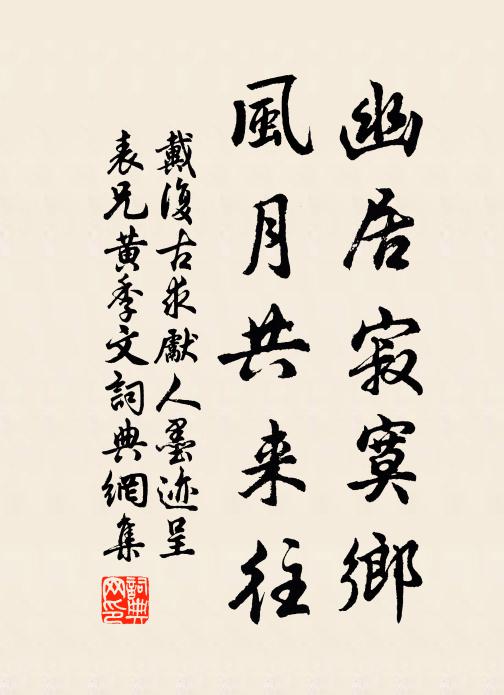 幽居寂寞鄉
風月共来往
戴復古求獻人墨迹呈
表兄黄季文詞典網集
詞典網印